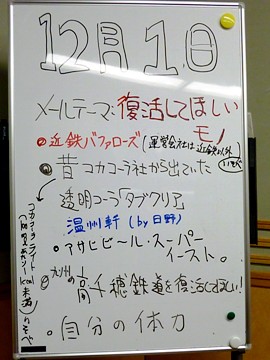 12月1日
メールテーマ:復活してほしいモノ
近鉄バファローズ(運営会社は近鉄以外)
昔 コカコーラ社から出ていた
透明コーラ「タブクリア」
温州軒(by日野)
アサヒビール・スーパーイースト。
九州の高千穂鉄道を復活してほしい!
自分の体力